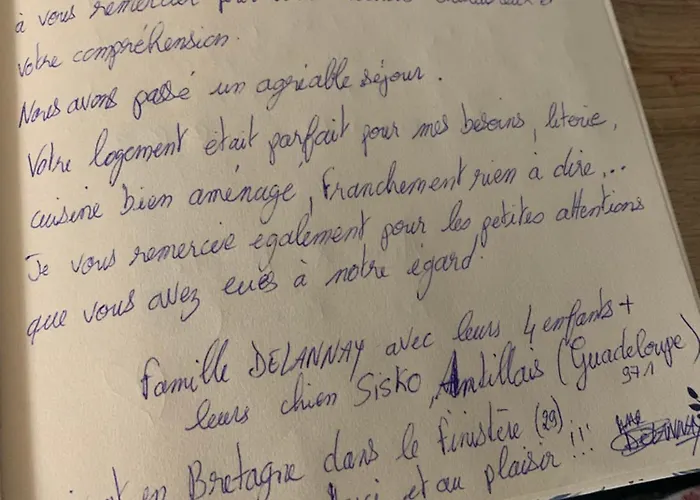 à vous remercier pour
votre compréhension.
Nous avons passé un agréable séjour.
Votre logement était parfait pour mes besoins, literie,
cuisine bien aménagé, franchement rien à dire,...
Je vous remercie également pour les petites attentions
que vous avez eues à notre égard.
famille DELANNAY avec leurs 4 enfants +
leurs chien Sisko, Antillais (Guadeloupe)
971
en Bretagne dans le finistère (29)
et au plaisir !!!
DELANNAY